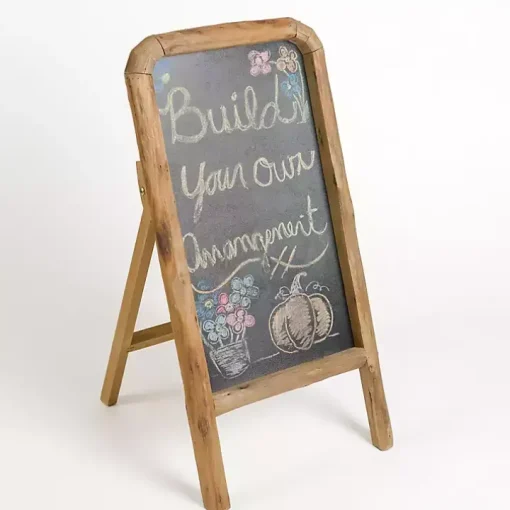 Build
Your Own
Arrangement